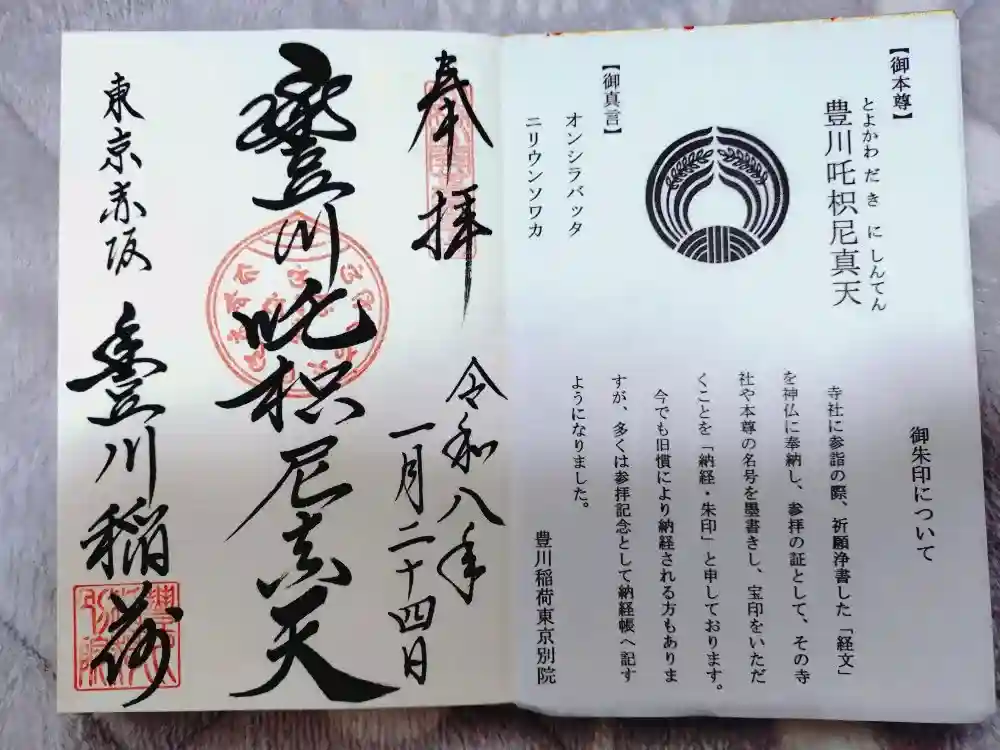 【御本尊】
とよかわ だ き に しんてん
豊川吒枳尼真天
【御真言】
オンシラバッタ
ニリウンソワカ
御朱印について
寺社に参詣の際、祈願浄書した「経文」
を神仏に奉納し、参拝の証として、その寺
社や本尊の名号を墨書きし、宝印をいただ
くことを「納経・朱印」と申しております。
今でも旧慣により納経される方もありま
すが、多くは参拝記念として納経帳へ記す
ようになりました。
豊川稲荷東京別院
奉拝
令和八年
一月二十四日
豊川吒枳尼真天
東京赤坂
豊川稲荷